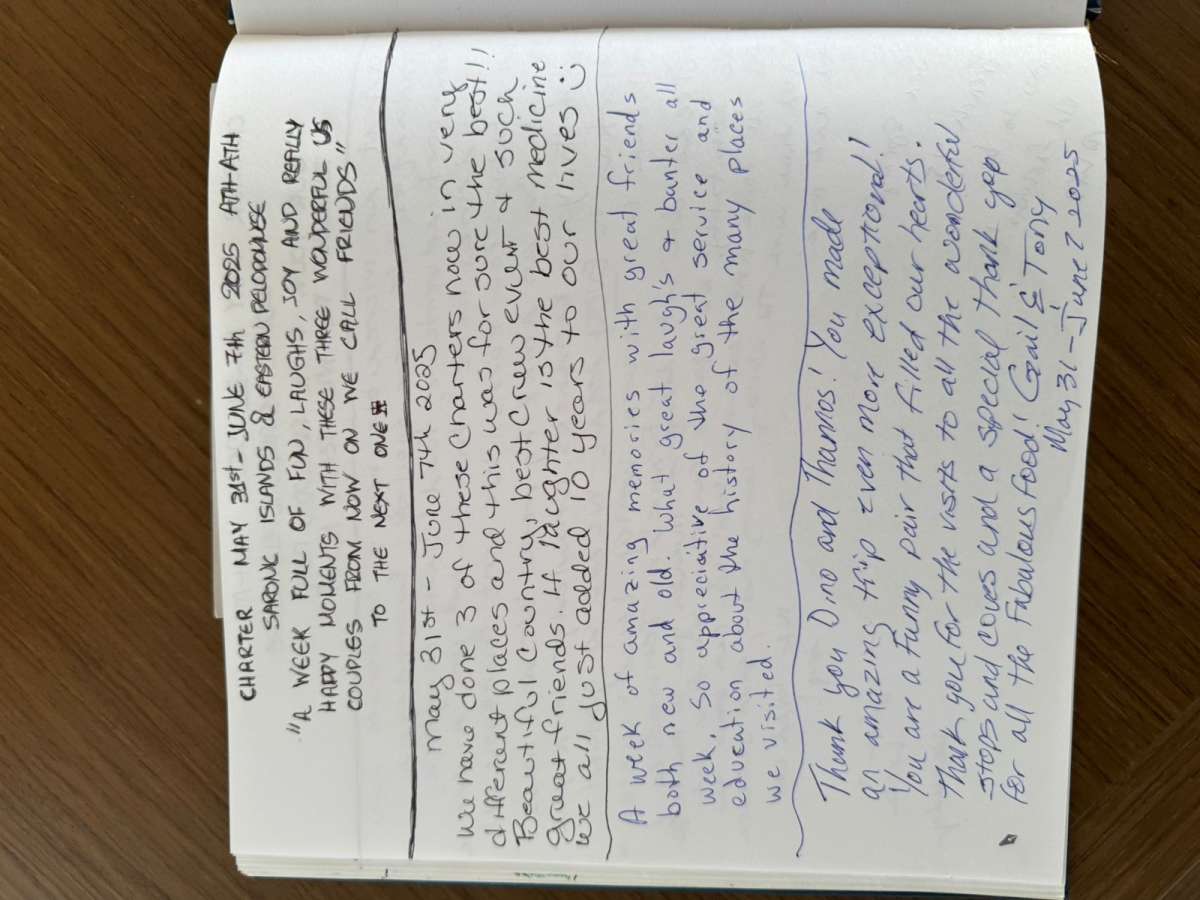 CHARTER MAY 31st - JUNE 7th 2025 ATH-ATH
SARONIC ISLANDS & EASTERN PELOPONNESE
"A WEEK FULL OF FUN, LAUGHS, JOY AND REALLY
HAPPY MOMENTS WITH THESE THREE WONDERFUL US
COUPLES FROM NOW ON WE CALL FRIENDS"
TO THE NEXT ONE!!!
May 31st - June 7th 2025
We have done 3 of these Charters now in very
different places and this was for sure the best!!
Beautiful Country, best Crew ever & such
great friends. If laughter is the best medicine
we all just added 10 years to our lives :)
A week of amazing memories with great friends
both new and old. What great laugh's & banter all
week. So appreciative of the great service and
education about the history of the many places
we visited.
Thank you Dino and Thannos! You made
an amazing trip even more exceptional!
You are a funny pair that filled our hearts.
Thank you for the visits to all the wonderful
stops and coves and a special thank you
for all the fabulous food! Gail & Tony
May 31 - June 7 2025